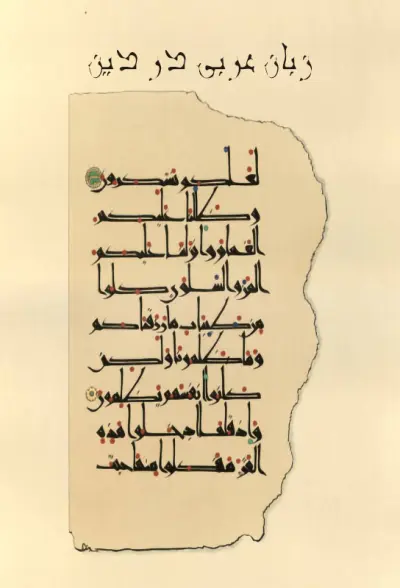 زبان عربی در دین
لعلكم تشكرون
وظللنا عليكم
الغمام وانزلنا عليكم
المن والسلوى كلوا
من طيبات ما رزقناكم
وما ظلمونا ولكن
كانوا انفسهم يظلمون
واذ قلنا ادخلوا هذه
القرية فكلوا منها حيث